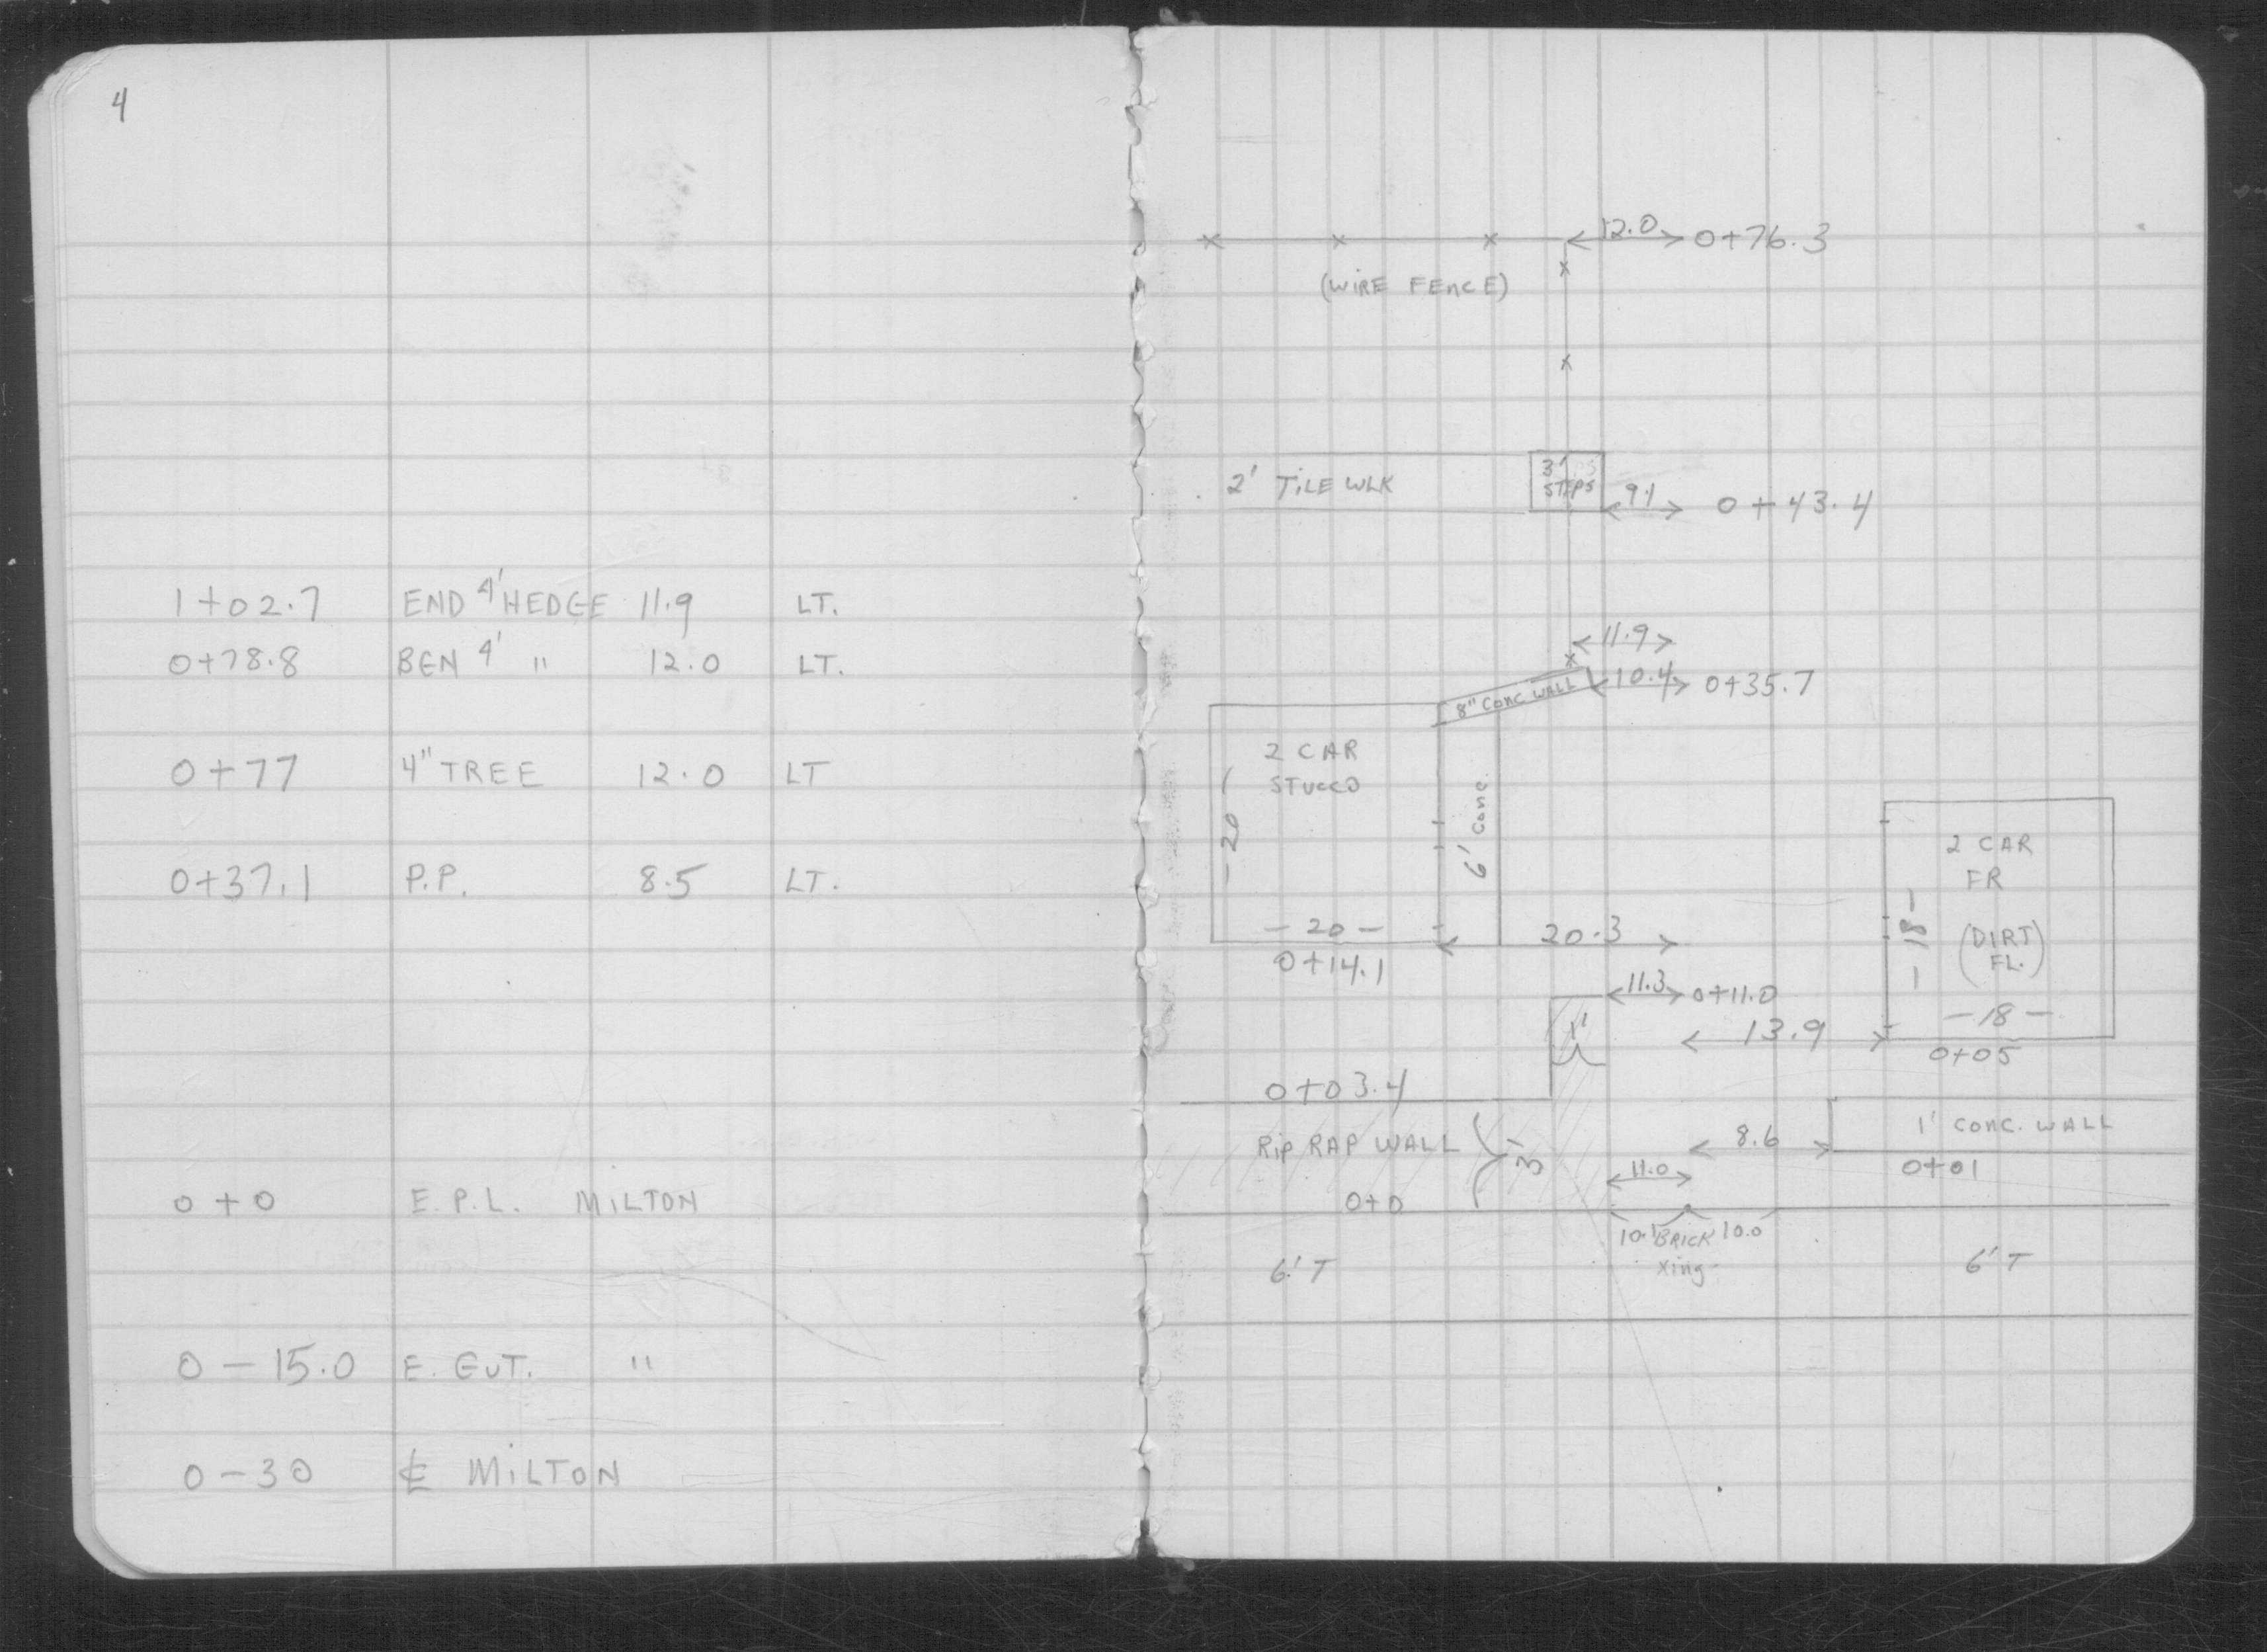 4
1+02.7 END 4' HEDGE 11.9 LT.
0+78.8 BEN 4' " 12.0 LT.
0+77 4" TREE 12.0 LT
0+37.1 P.P. 8.5 LT.
0+0 E. P. L. MILTON
0-15.0 E. GUT. "
0-30 ℄ MILTON
12.0 0+76.3
(WIRE FENCE)
2' TILE WLK
3'
STEPS
9.1 0+43.4
11.9
8" CONC WALL
10.4 0+35.7
2 CAR
STUCCO
-20-
6' CONC.
-20-
20.3
0+14.1
2 CAR
FR
(DIRT
FL.)
-18-
-18-
11.3 0+11.0
1'
13.9
0+05
0+03.4
RIP RAP WALL
3'
8.6
1' CONC. WALL
11.0
0+01
0+0
10.1 BRICK 10.0
Xing
6' T
6' T